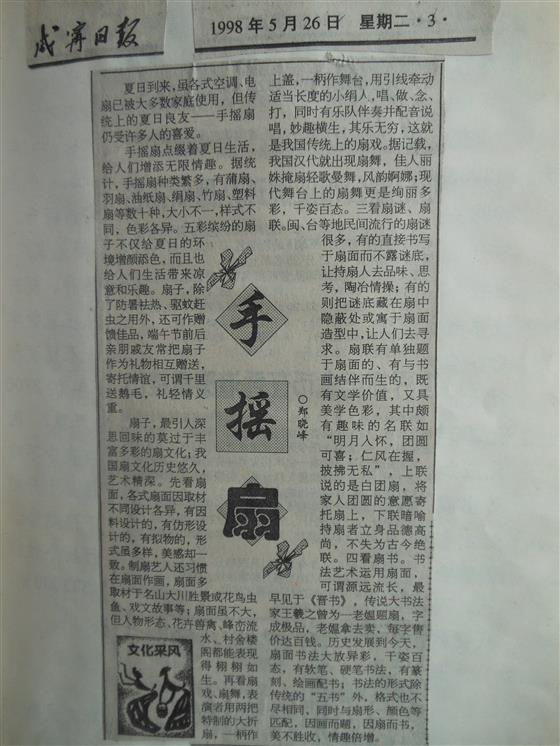 咸宁日报
1998年5月26日 星期二·3·
手摇扇
○郑晓峰
夏日到来，虽各式空调、电
扇已被大多数家庭使用，但传
统上的夏日良友——手摇扇
仍受许多人的喜爱。
手摇扇点缀着夏日生活，
给人们增添无限情趣。据统
计，手摇扇种类繁多，有蒲扇、
羽扇、油纸扇、绢扇、竹扇、塑料
扇等数十种，大小不一，样式不
同，色彩各异。五彩缤纷的扇
子不仅给夏日的环
境增颜添色，而且也
给人们生活带来凉
意和乐趣。扇子，除
了防暑祛热、驱蚊赶
虫之用外，还可作赠
馈佳品，端午节前后
亲朋戚友常把扇子
作为礼物相互赠送，
寄托情谊，可谓千里
送鹅毛，礼轻情义
重。
扇子，最引人深
思回味的莫过于丰
富多彩的扇文化；我
国扇文化历史悠久，
艺术精深。先看扇
面，各式扇面因取材
不同设计各异，有因
料设计的，有仿形设
计的，有拟物的，形
式虽多样，美感却一
致。制扇艺人还习惯
在扇面作画，扇面多
取材于名山大川胜景或花鸟虫
鱼、戏文故事等；扇面虽不大，
但人物形态、花卉兽禽、峰峦流
水、村舍楼
阁都能表现
得栩栩如
生。再看扇
戏、扇舞，表
演者用两把
特制的大折
扇，一柄作
文化采风
上盖，一柄作舞台，用引线牵动
适当长度的小绢人，唱、做、念、
打，同时有乐队伴奏并配音说
唱，妙趣横生，其乐无穷，这就
是我国传统上的扇戏。据记载，
我国汉代就出现扇舞，佳人丽
姝掩扇轻歌曼舞，风韵婀娜；现
代舞台上的扇舞更是绚丽多
彩，千姿百态。三看扇谜、扇
联。闽、台等地民间流行的扇谜
很多，有的直接书写
于扇面而不露谜底，
让持扇人去品味、思
考，陶冶情操；有的
则把谜底藏在扇中
隐蔽处或寓于扇面
造型中，让人们去寻
求。扇联有单独题
于扇面的、有与书
画结伴而生的，既
有文学价值，又具
美学色彩，其中颇
有趣味的名联如
“明月入怀，团圆
可喜；仁风在握，
披拂无私”，上联
说的是白团扇，将
家人团圆的意愿寄
托扇上，下联暗喻
持扇者立身品德高
尚，不失为古今绝
联。四看扇书。书
法艺术运用扇面，
可谓源远流长，最
早见于《晋书》，传说大书法
家王羲之曾为一老媪题扇，字
成极品，老媪拿去卖、每字售
价达百钱。历史发展到今天，
扇面书法大放异彩，千姿百
态，有软笔、硬笔书法，有篆
刻、绘画配书；书法的形式除
传统的“五书”外，格式也不
尽相同，同时与扇形、颜色等
匹配，因画而题，因扇而书，
美不胜收，情趣倍增。